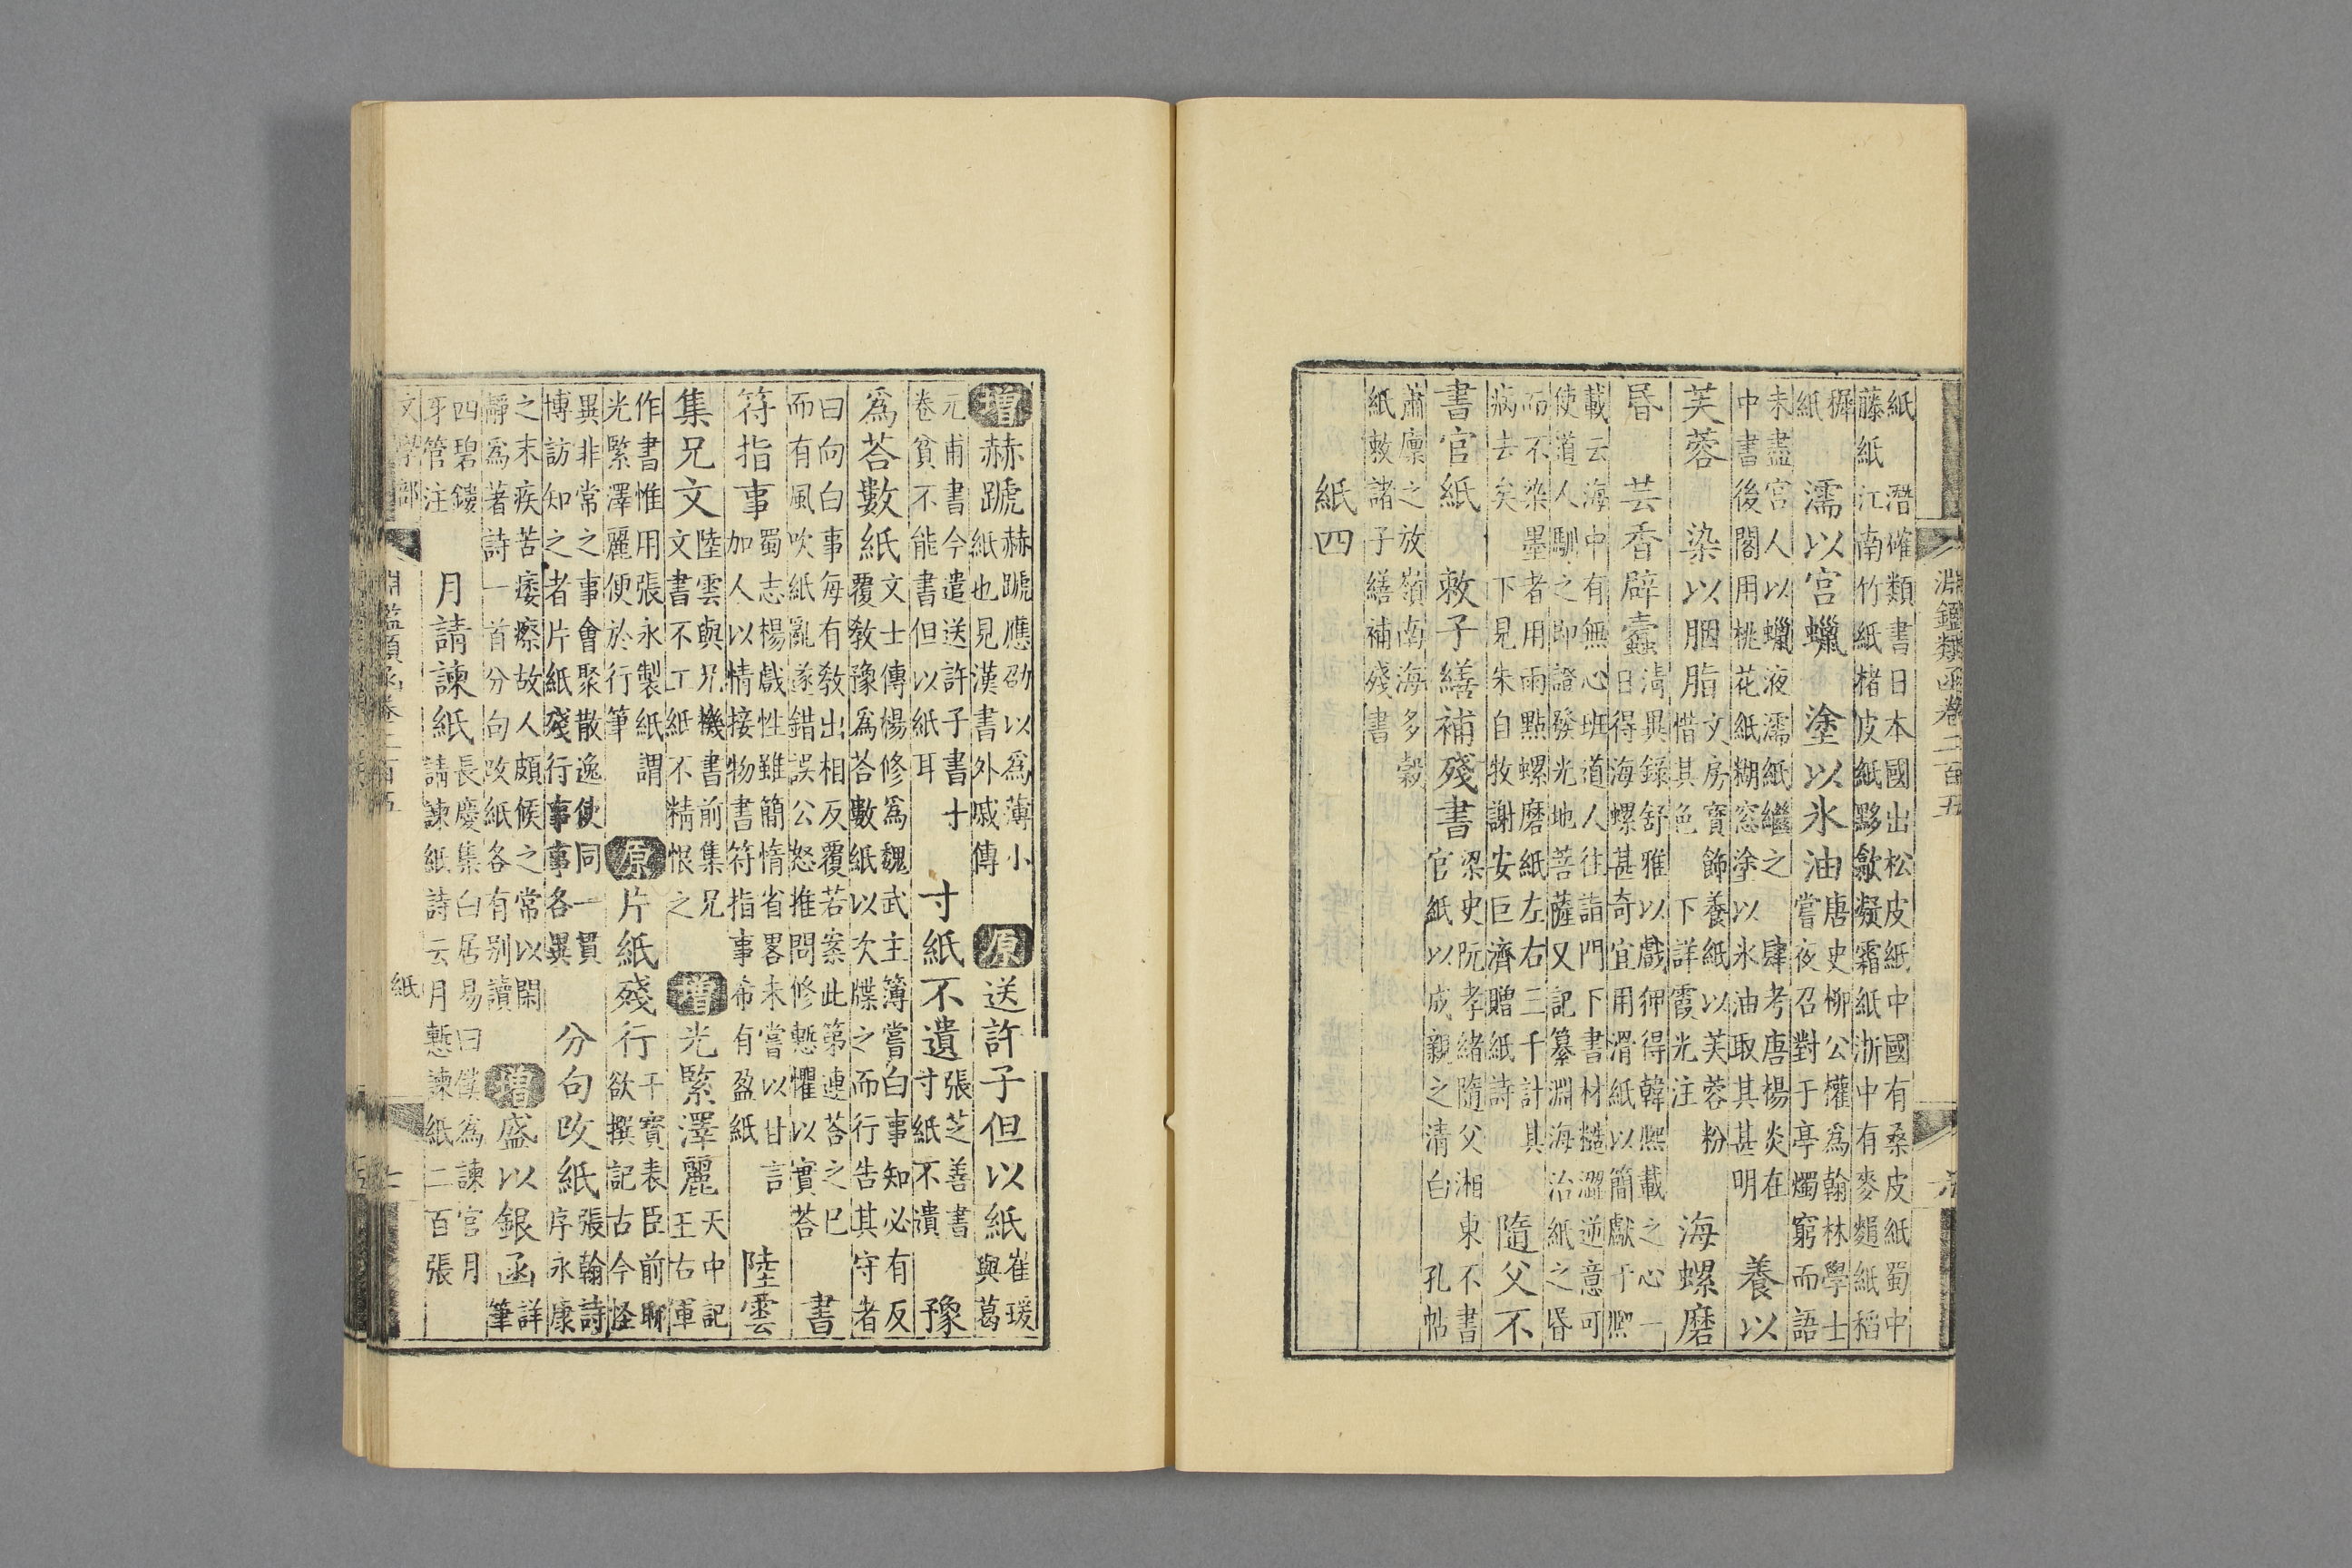 淵鑑類函卷二百五
紙 潛確類書日本國出松皮紙中國有桑皮紙蜀中
藤紙江南竹紙楮皮紙黟歙凝霜紙浙中有麥䴬紙稻
穉紙 濡以宮蠟 塗以氷油 唐史柳公權爲翰林學士
嘗夜召對于亭燭窮而語
未盡宮人以蠟液濡紙繼之 肆考唐楊炎在
中書後閣用桃花紙糊窓塗以氷油取其甚明 養以
芙蓉 染以胭脂 文房寶飾養紙以芙蓉粉
惜其色 下詳霞光注 海螺磨
昬 芸香辟蠧 清異錄舒雅以戲狎得韓熙載之心一
日得海螺甚奇宜用滑紙以簡獻于熈
載云海中有無心班道人往詣門下書材糙澀逆意可
使道人馴之即證發光地菩薩又記纂淵海治紙之昬
而不染墨者用雨點螺磨紙左右三千計其
病去矣 下見朱自牧謝安巨濟贈紙詩 隨父不
書官紙 敕子繕補殘書 梁史阮孝緒隨父湘東不書
官紙以成親之清白 孔帖
蕭廩之放嶺南海多穀
紙敕諸子繕補殘書
紙四
增赫蹏 赫蹏應劭以爲薄小
紙也見漢書外戚傳 原送許子但以紙 崔瑗
與葛
元甫書今遣送許子書十
卷貧不能書但以紙耳 寸紙不遺 張芝善書
寸紙不遺 豫
爲荅數紙 文士傳楊修爲魏武主簿嘗白事知必有反
覆教豫爲荅數紙以次牒之而行告其守者
曰向白事每有教出相反覆若案此第連荅之已
而有風吹紙亂遂錯誤公怒推問修慙懼以實荅 書
符指事 蜀志楊戲性雖簡惰省畧未嘗以甘言
加人以情接物書符指事希有盈紙 陸雲
集兄文 陸雲與兄機書前集兄
文文書不工紙不精恨之 增光緊澤麗 天中記
王右軍
作書惟用張永製紙謂
光緊澤麗便於行筆 原片紙殘行 干寶表臣前聊
欲撰記古今怪
異非常之事會聚散逸使同一貫
博訪知之者片紙殘行事事各異 分句改紙 張翰詩
序永康
之末疾苦痿瘵故人頗候之常以閑
靜爲著詩一首分句改紙各有别讀 增盛以銀函 詳
筆
四碧鏤
牙管注 月請諫紙 長慶集白居易曰僕爲諫官月
請諫紙詩云月慙諫紙二百張
文學部 淵鑑類函卷二百五 紙